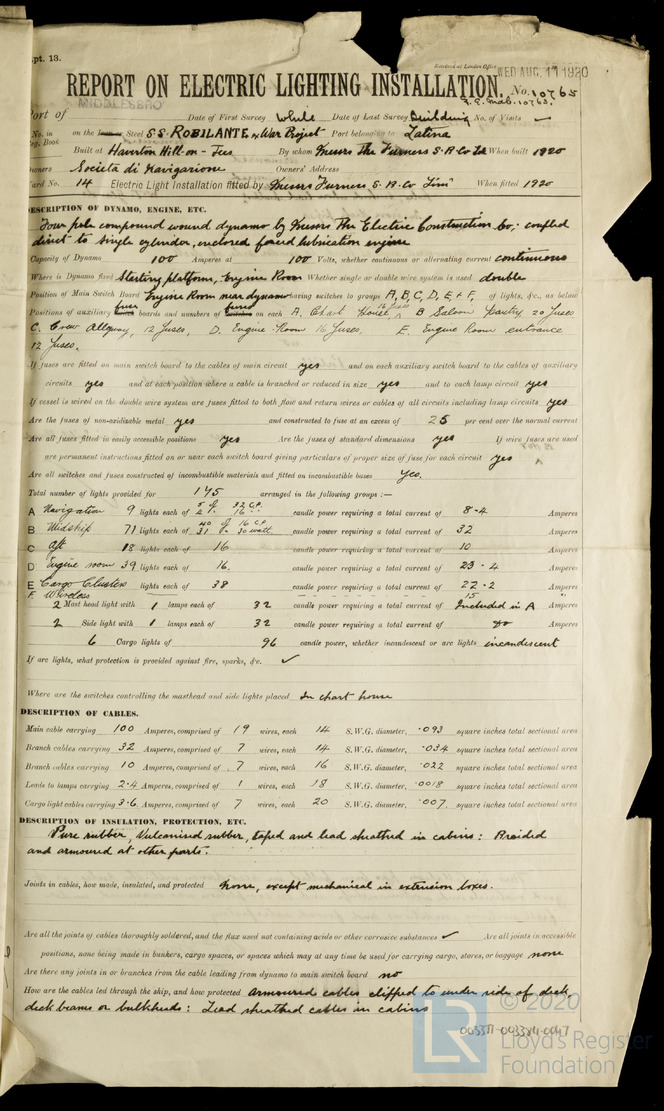 pt. 13.
Received at London Office WED AUG. 11 1920
REPORT ON ELECTRIC LIGHTING INSTALLATION. No. 10765
MIDDLESBRO'
Port of Date of First Survey While Date of Last Survey Building No. of Visits
No. in Reg. Book on the Iron or Steel S.S. ROBILANTE ex War Project Port belonging to Latina
Built at Haverton Hill-on-Tees By whom Messrs The Furness S.B. Co Ld When built 1920
Owners Societa di Navigazione Owners' Address
Yard No. 14 Electric Light Installation fitted by Messrs Furness S.B. Co Lim When fitted 1920
DESCRIPTION OF DYNAMO, ENGINE, ETC.
Four pole compound wound dynamo by Messrs The Electric Construction Co; coupled
direct to single cylinder, enclosed forced lubrication engine
Capacity of Dynamo 100 Amperes at 100 Volts, whether continuous or alternating current continuous
Where is Dynamo fixed Starting platform, Engine Room Whether single or double wire system is used double
Position of Main Switch Board Engine Room near dynamo having switches to groups A, B, C, D, E + F, of lights, &c., as below
Positions of auxiliary fuse boards and numbers of fuses on each A, Chart House, B Saloon Pantry 20 fuses
C. Crew Alleyway, 12 fuses, D. Engine Room 16 fuses, E. Engine Room entrance
12 fuses.
If fuses are fitted on main switch board to the cables of main circuit yes and on each auxiliary switch board to the cables of auxiliary
circuits yes and at each position where a cable is branched or reduced in size yes and to each lamp circuit yes
If vessel is wired on the double wire system are fuses fitted to both flow and return wires or cables of all circuits including lamp circuits yes
Are the fuses of non-oxidizable metal yes and constructed to fuse at an excess of 25 per cent over the normal current
Are all fuses fitted in easily accessible positions yes Are the fuses of standard dimensions yes If wire fuses are used
are permanent instructions fitted on or near each switch board giving particulars of proper size of fuse for each circuit yes
Are all switches and fuses constructed of incombustible materials and fitted on incombustible bases Yes.
Total number of lights provided for 175 arranged in the following groups :—
A Navigation 9 lights each of 32 C.P. 16 candle power requiring a total current of 8.4 Amperes
B Midship 71 lights each of 40 of 16 C.P. 31 30 watt candle power requiring a total current of 32 Amperes
C Aft 18 lights each of 16 candle power requiring a total current of 10 Amperes
D Engine room 39 lights each of 16. candle power requiring a total current of 23.4 Amperes
E Cargo Clusters lights each of 38 candle power requiring a total current of 22.2 Amperes
F. Wireless 15 "
2 Mast head light with 1 lamps each of 32 candle power requiring a total current of Included in A Amperes
2 Side light with 1 lamps each of 32 candle power requiring a total current of do Amperes
6 Cargo lights of 96 candle power, whether incandescent or arc lights incandescent
If arc lights, what protection is provided against fire, sparks, &c. ✓
Where are the switches controlling the masthead and side lights placed In chart house
DESCRIPTION OF CABLES.
Main cable carrying 100 Amperes, comprised of 19 wires, each 14 S.W.G. diameter, .093 square inches total sectional area
Branch cables carrying 32 Amperes, comprised of 7 wires, each 14 S.W.G. diameter, .034 square inches total sectional area
Branch cables carrying 10 Amperes, comprised of 7 wires, each 16 S.W.G. diameter, .022 square inches total sectional area
Leads to lamps carrying 2.4 Amperes, comprised of 1 wires, each 18 S.W.G. diameter, .0018 square inches total sectional area
Cargo light cables carrying 3.6 Amperes, comprised of 7 wires, each 20 S.W.G. diameter, .007 square inches total sectional area
DESCRIPTION OF INSULATION, PROTECTION, ETC.
Pure rubber, Vulcanised rubber, taped and lead sheathed in cabins: Braided
and armoured at other parts.
Joints in cables, how made, insulated, and protected None, except mechanical in extension boxes.
Are all the joints of cables thoroughly soldered, and the flux used not containing acids or other corrosive substances ✓ Are all joints in accessible
positions, none being made in bunkers, cargo spaces, or spaces which may at any time be used for carrying cargo, stores, or baggage none
Are there any joints in or branches from the cable leading from dynamo to main switch board no
How are the cables led through the ship, and how protected armoured cables clipped to under side of deck,
deck beams or bulkheads: Lead sheathed cables in cabins
© 2020
Lloyd's Register
Foundation
LR
003371-003384-0047